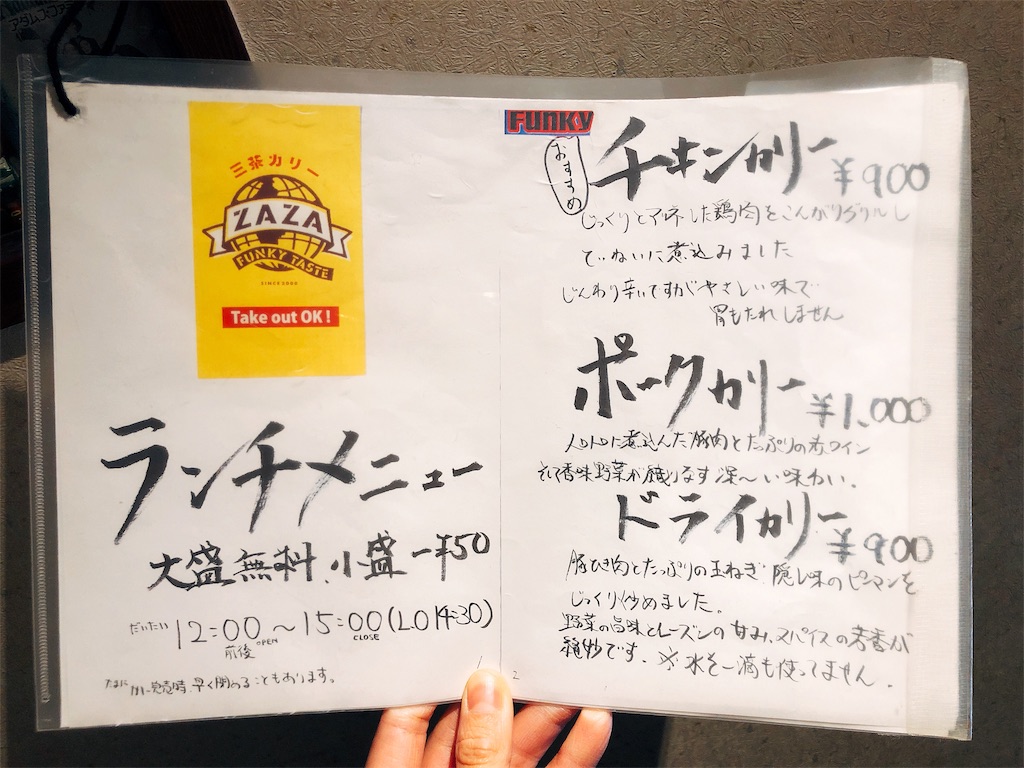 三茶カリー
ZAZA
FUNKY TASTE
SINCE 2000
Take out OK!
ランチメニュー
大盛無料.小盛-¥50
だいたい 12:00～15:00(L.O 14:30)
OPEN CLOSE
前後
たまに カリー完売時、早く閉めることもあります。
1
FUNKY
おすすめ
チキンカリー ¥900
じっくりとマリネした鶏肉をこんがりグリルし
ていねいに煮込みました
じんわり辛いですがやさしい味で
胃もたれしません
ポークカリー ¥1,000
トロトロに煮込んだ豚肉とたっぷりの赤ワイン
そして香味野菜が織りなす深～い味わい.
ドライカリー ¥900
豚ひき肉とたっぷりの玉ねぎ、隠し味のピーマンを
じっくり炒めました.
野菜の旨味とレーズンの甘み、スパイスの芳香が
絶妙です. ※水を一滴も使ってません.
2